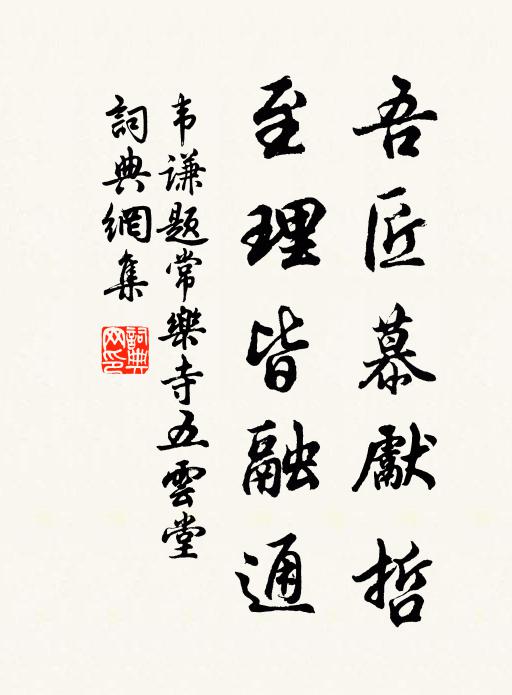 吾匠慕獻哲
至理皆融通
韦谦题常樂寺五雲堂
詞典網集
詞典网印